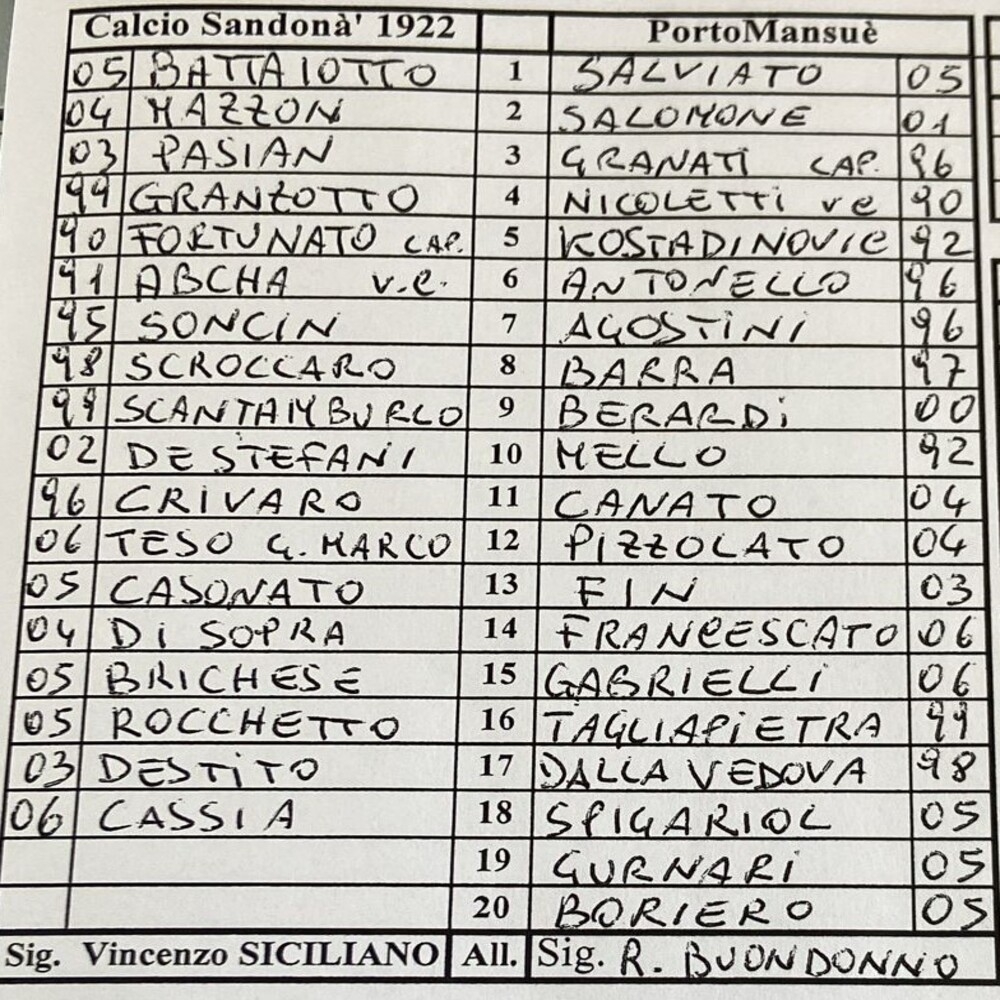 Calcio Sandonà' 1922 PortoMansuè
05 BATTAIOTTO 1 SALVIATO 05
04 MAZZON 2 SALOMONE 01
03 PASIAN 3 GRANATI CAP. 96
99 GRANZOTTO 4 NICOLETTI ve 90
90 FORTUNATO CAP. 5 KOSTADINOVIC 92
91 ABCHA v.c. 6 ANTONELLO 96
95 SONCIN 7 AGOSTINI 96
98 SCROCCARO 8 BARRA 97
99 SCANTAMBURLO 9 BERARDI 00
02 DE STEFANI 10 MELLO 92
96 CRIVARO 11 CANATO 04
06 TESO G. MARCO 12 PIZZOLATO 04
05 CASONATO 13 FIN 03
04 DI SOPRA 14 FRANCESCATO 06
05 BRICHESE 15 GABRIELLI 06
05 ROCCHETTO 16 TAGLIAPIETRA 99
03 DESTITO 17 DALLA VEDOVA 98
06 CASSIA 18 SPIGARIOL 05
19 GURNARI 05
20 BORIERO 05
Sig. Vincenzo SICILIANO All. Sig. R. BUONDONNO